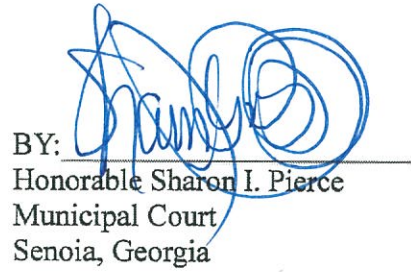 BY:
Honorable Sharon I. Pierce
Municipal Court
Senoia, Georgia